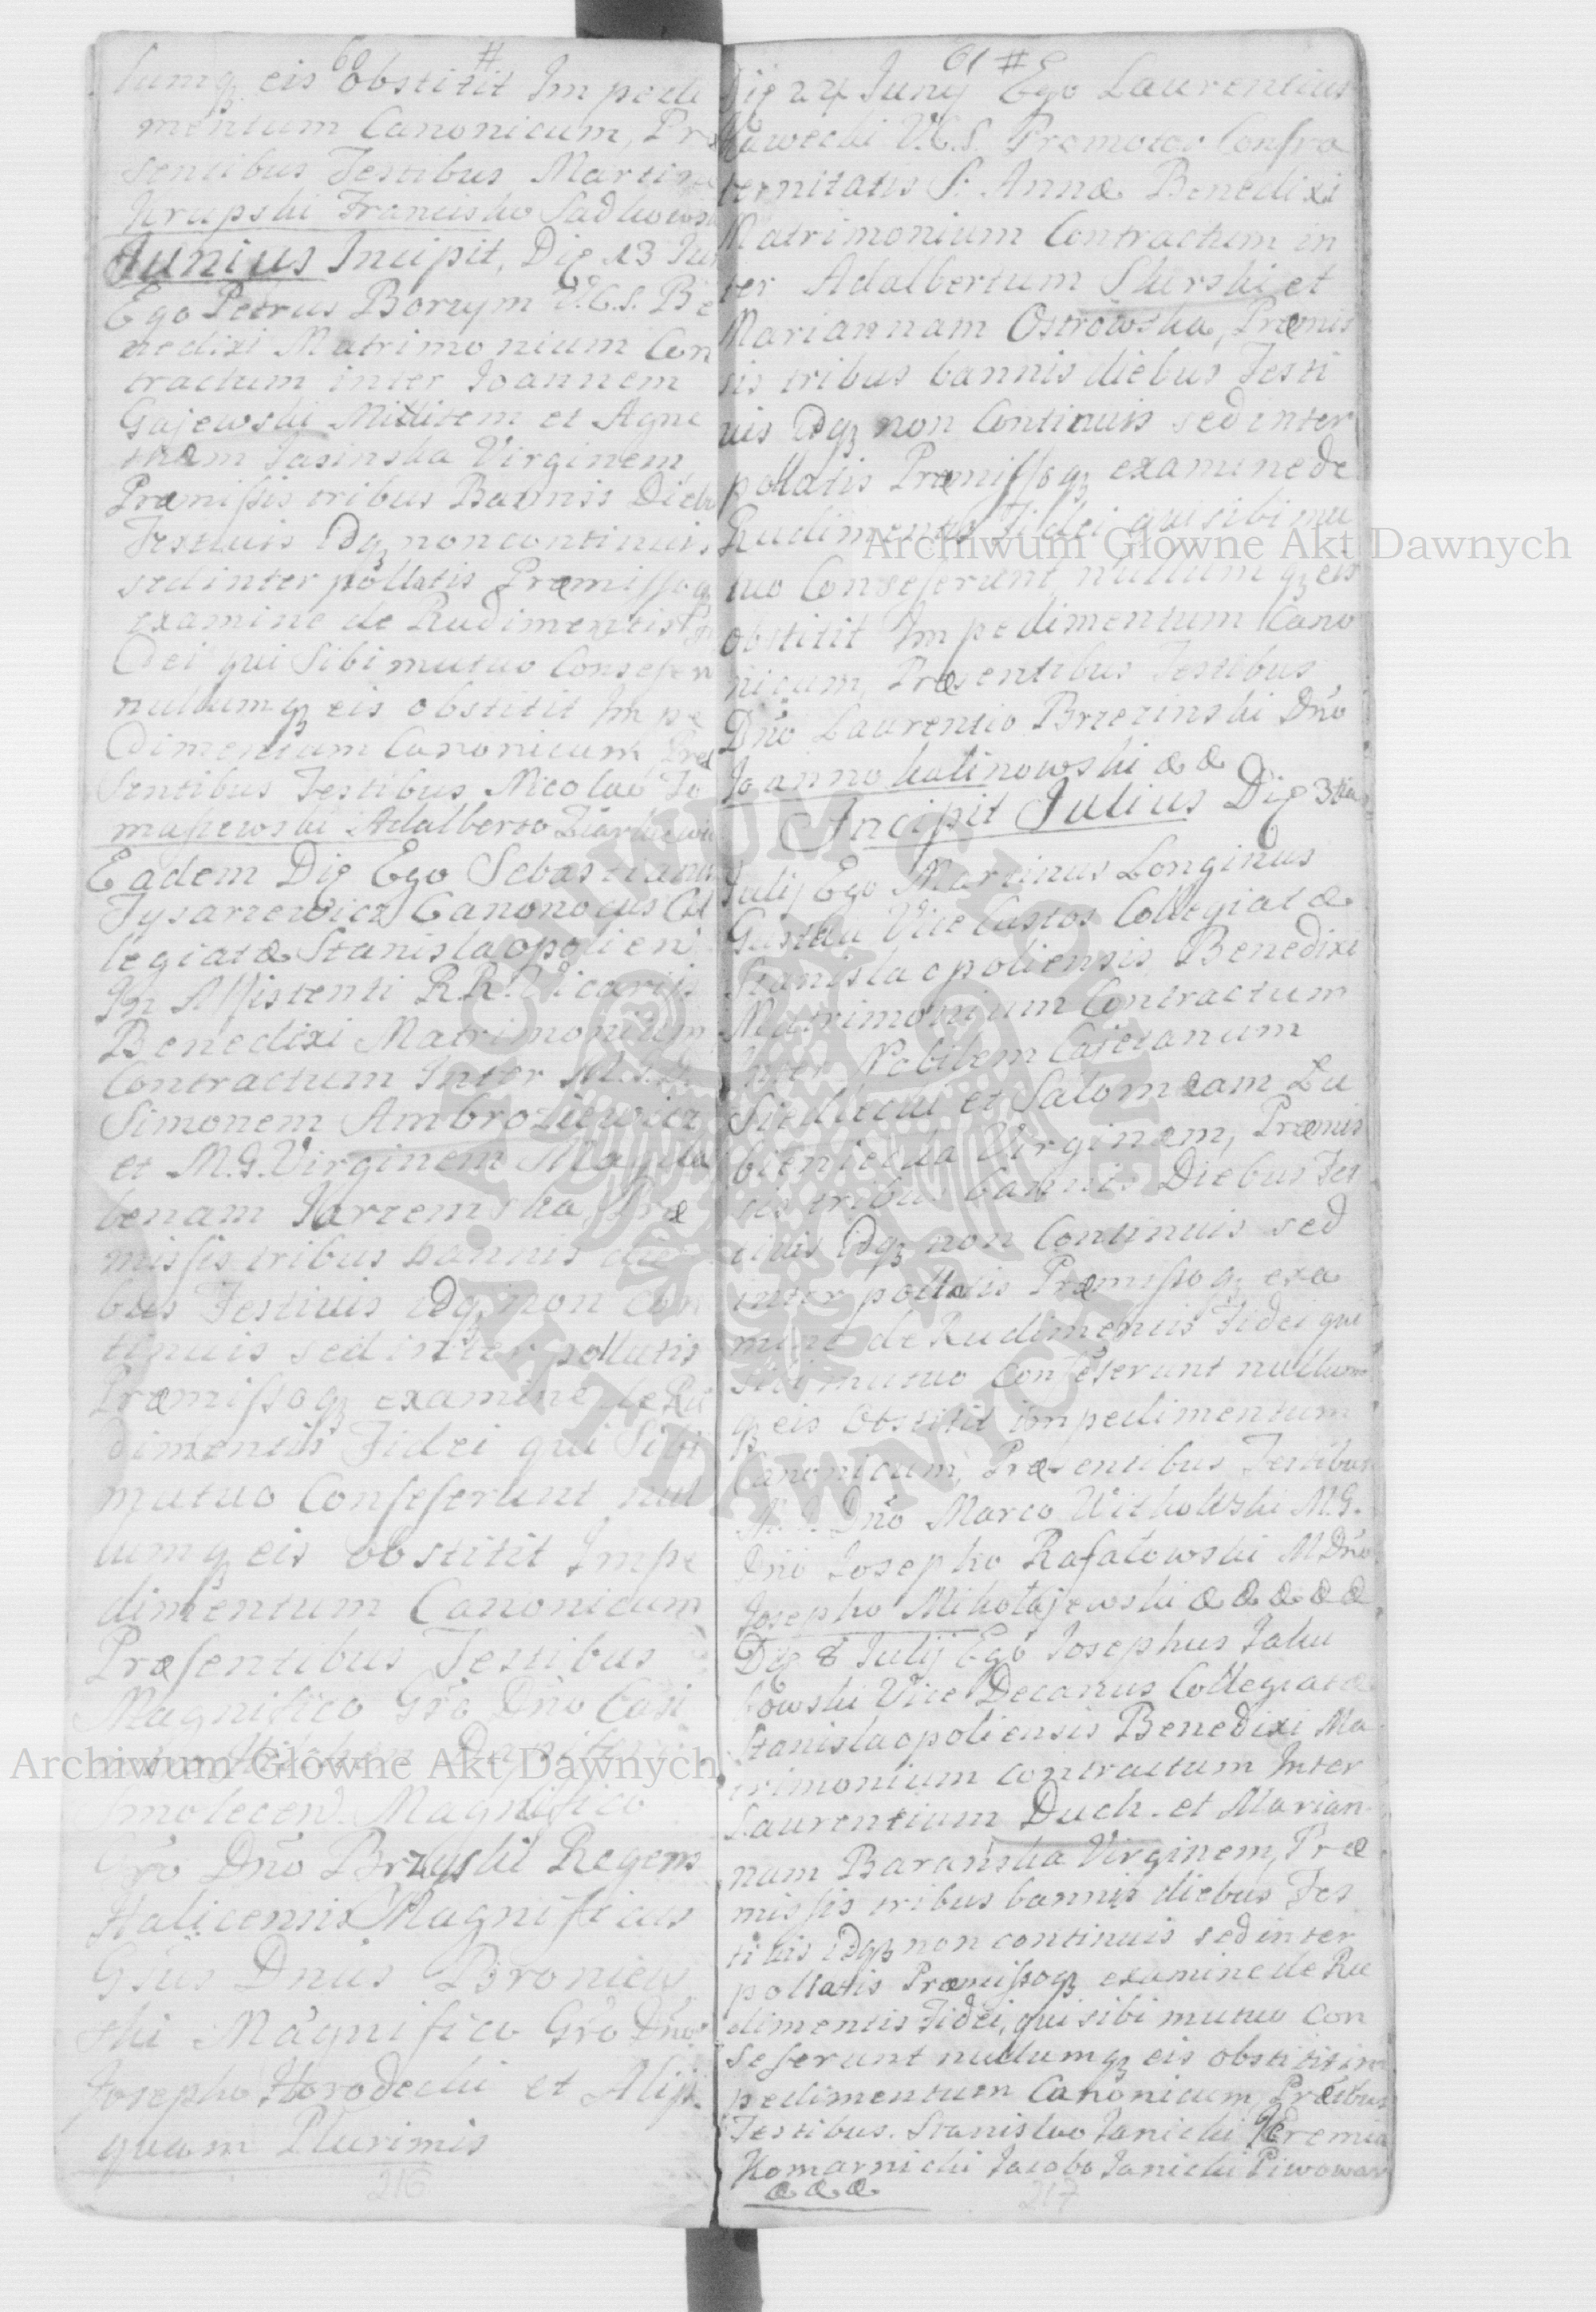 60 #
lumq eis obstitit Impedi
mentum Canonicum, Præ
sentibus Testibus Martino
Krupski Francisko Sadkowski
Junius Incipit, Die 13 Juny
Ego Petrus Borzym V.C.S. Be
nedixi Matrimonium Con
tractum inter Joannem
Gajewski Militem et Agne
tham Jasinska Virginem
Præmissis tribus Bannis Diebus
Festiuis Idq non continuis,
sed inter pollatis Præmissoq
examine de Rudimentis Fi
Dei qui Sibi mutuo Consesen
nullumq eis obstitit Impe
Dimentum Canonicum Præ
Sentibus Testibus Nicolao To
maszewski Adalberto
Eadem Die Ego Sebastianus
Tysarzewicz Canonocus Col
legiatæ Stanislaopolien
In Assistenti R.R. Vicarijs
Benedixi Matrimonium
Contractum Inter
Simonem Ambroziewicz
et M.G. Virginem Magda
lenam Jarzemska, Præ
missis tribus bannis die
bus Festiuis Idq non con
tinuis sed inter pollatis
Præmissoq examine de Ru
dimentis Fidei qui Sibi
mutuo Conseserunt nul
lumq eis obstitit Impe
dimentum Canonicum
Præsentibus Testibus
Magnifico Gro Dno Casi
Magnifico
Gro Dno Brzyski Regens
Halicensis Magnificus
Gsus Dnus Broniew
ski Magnifico Gro Dno
Josepho Horodecki et Alijs
quam Plurimis
216
61 #
Die 24 Juny Ego Laurentius
V.C.S. Promotor Confra
ternitatis S. Annæ Benedixi
Matrimonium Contractum in
ter Adalbertum Skirski et
Mariannam Ostrowska, Præmis
sis tribus bannis diebus Festi
uis Idq non Continuis sed inter
pollatis Præmissoq examine de
Rudimentis Fidei qui sibi mu
tuo Conseserunt nullumq eis
obstitit Impedimentum Cano
nicum, Præsentibus Testibus
Dno Laurentio Brzezinski Dno
Joanno Kalinowski & &
Incipit Julius Die 3tia
Julij Ego Martinus Longinus
Vice Custos Collegiatæ
Stanislaopoliensis Benedixi
Matrimonium Contractum
Inter Nobilem Cajetanum
Siedlecki et Salomeam Lu
bieniecka Virginem, Præmis
sis tribus bannis Diebus Fes
tiuis Idq non Continuis sed
inter pollatis Præmissoq exa
mine de Rudimentis Fidei qui
sibi mutuo Conseserunt nullum
q eis Obstitit impedimentum
Canonicum, Præsentibus Testibus
Dno Marco Witkowski M.G.
Dno Josepho Rafalowski M Dno
Josepho Mikołajewski & & & & &
Die 8 Julij Ego Josephus Jaku
bowski Vice Decanus Collegiatæ
Stanislaopoliensis Benedixi Ma
trimonium contractum Inter
Laurentium Duch. et Marian
nam Baranska Virginem, Præ
missis tribus bannis diebus Fes
tiuis idq non continuis sed inter
pollatis Præmissoq examine de Ru
dimentis Fidei, qui sibi mutuo con
seserunt nullumq eis obstitit im
pedimentum Canonicum, Præsibus
Testibus. Stanislao Janicki Jeremia
Komarnicki Jacobo Janicki Piwowar
& & &
217
Archiwum Główne Akt Dawnych
Archiwum Główne Akt Dawnych
ARCHIWUM GŁÓWNE · AKT DAWNYCH ·